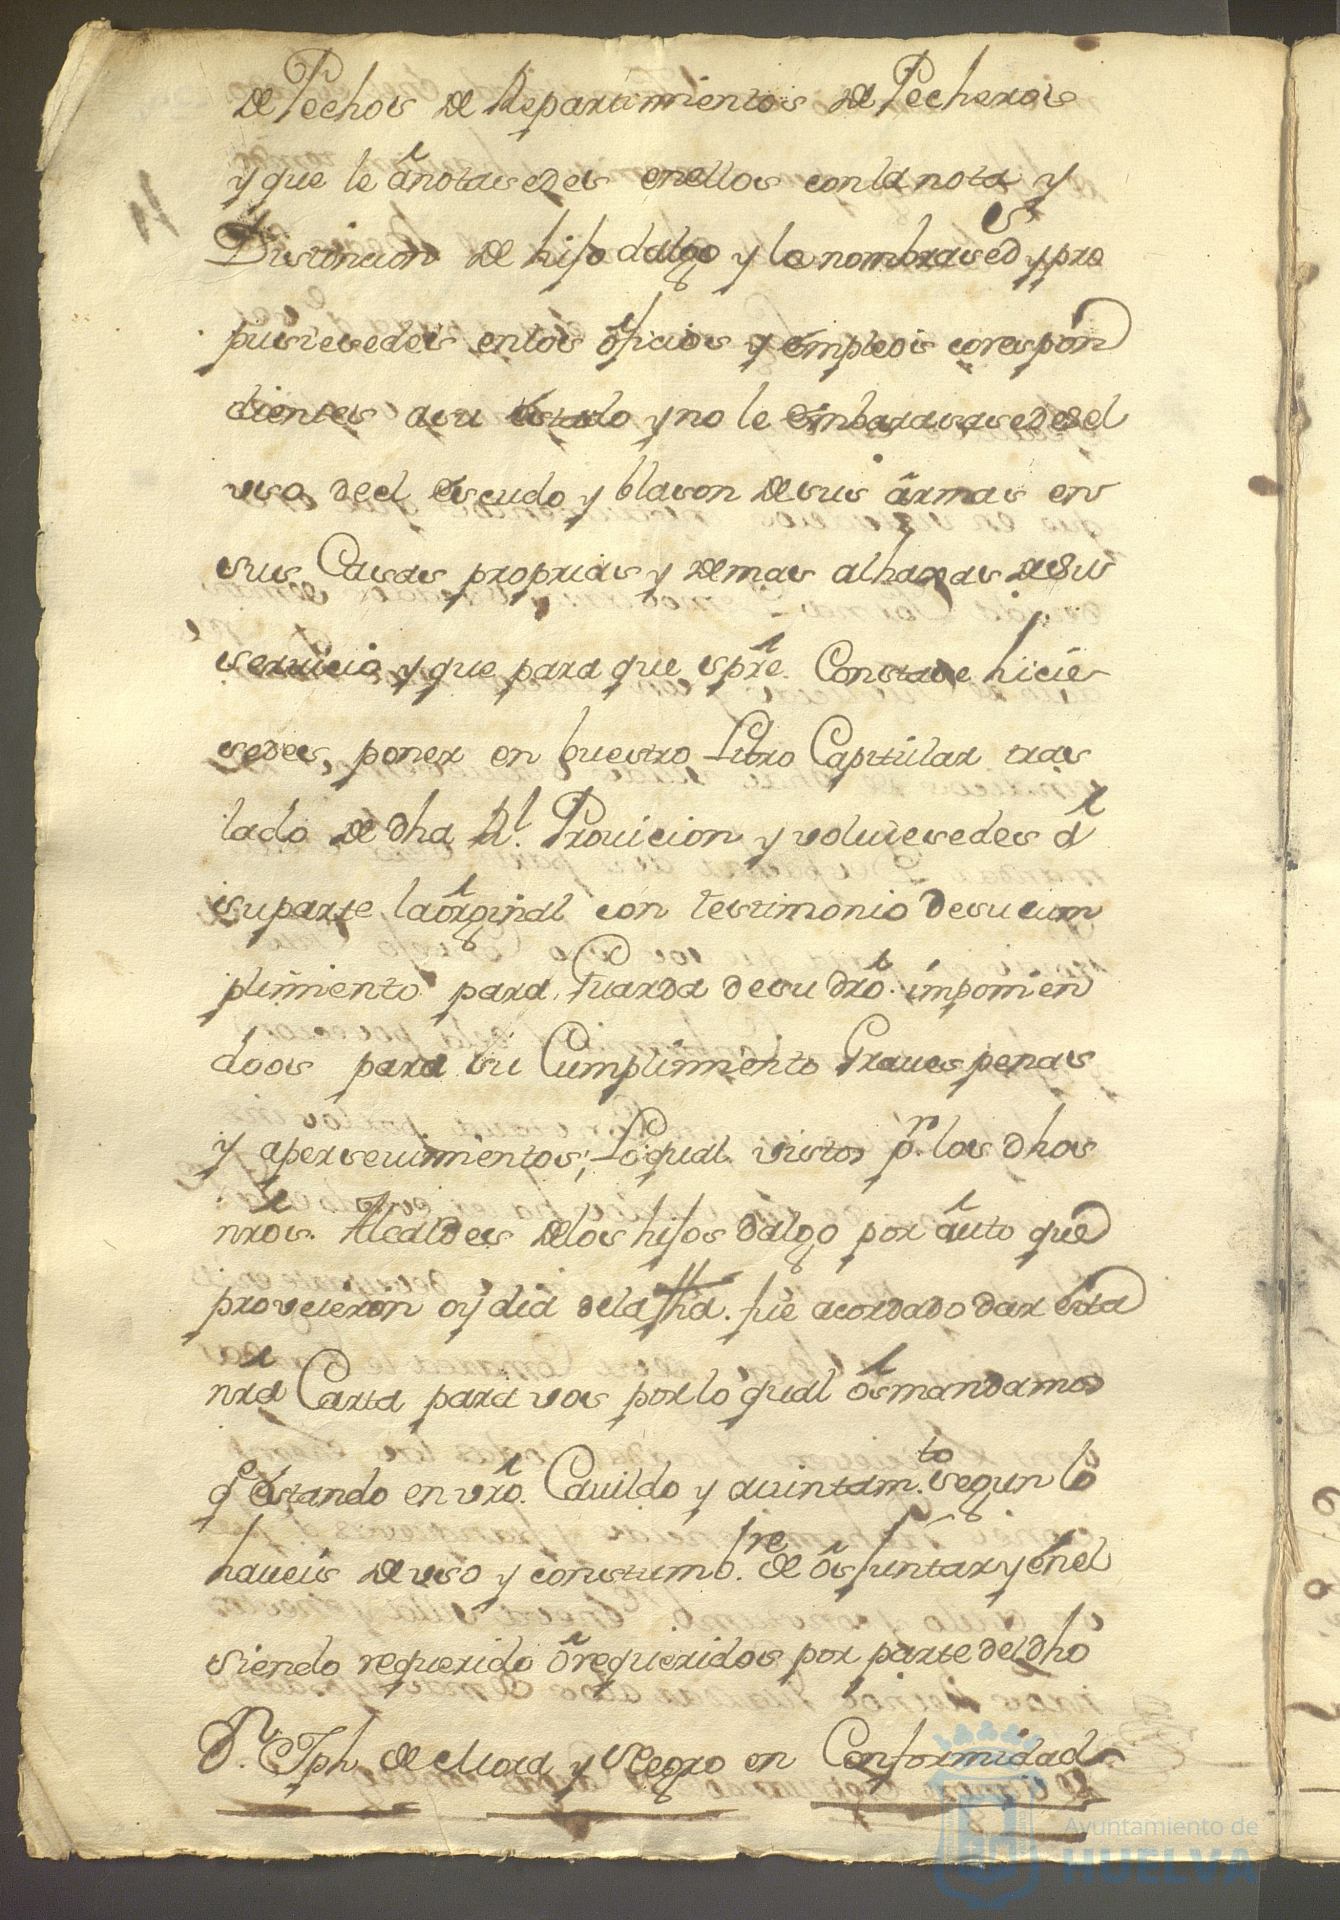 de Pechos de Repartimientos de Pecheros
y que le anotasedes en ellos con la nota y
Distincion de hijo dalgo y le nombrased, y pro
pusiesedeis en los oficios y empleos corespon
dientes a su estado y no le embarasasedes el
uso de el escudo y blason de sus armas en
sus Casas proprias y demas alhaxas de su
servicio y que para que spre. Constase hicie
sedes, poner en buestro Libro Capitular tras
lado de dha Rl. Provicion y volviesedes a
su parte la orginal con testimonio de su cum
plimiento para Guarda de su dro. imponien
doos para su Cumplimiento Graves penas
y apersevimientos; Lo qual visto pr. los dhos
nros. Alcaldes de los hijos dalgo por auto que
proveieron oy dia de la fha. fue acordado dar esta
nra Carta para vos por lo qual os mandamos
qe estando en vro. Cavildo y auintamto. segun lo
haveis de uso y constumbre. de os juntar y en el
siendo requerido o requeridos por parte del dho
Dn. Jph de Mora y Negro en Conformidad
Ayuntamiento de
HUELVA